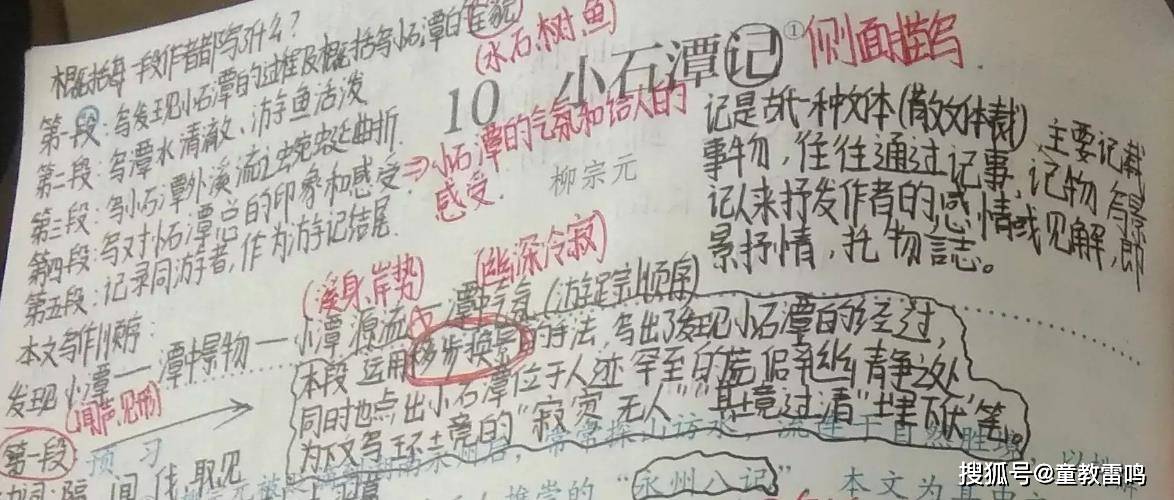 概括每一段作者都写了什么?
第一段:写发现小石潭的过程及概括写小石潭的全貌
(水石、树、鱼)
第二段:写潭水清澈、游鱼活泼
第三段:写小石潭外溪流之蜿蜒曲折
第四段:写对小石潭总的印象和感受
⇒小石潭的气氛和给人的
感受.
第五段:记录同游者,作为游记结尾
10 小石潭记①
侧面描写
柳宗元
记是古代一种文体(散文体裁)主要记载
事物,往往通过记事、记物、写景
记人来抒发作者的感情或见解,即
景抒情,托物言志。
本文写作顺序:
(溪身、岸势)
(幽深冷寂)
发现小潭—潭中景物—小潭源流—潭中气氛(游踪为顺序)
(闻声、见形)
本段运用移步换景的手法,写出了发现小石潭的经过,
同时也点出小石潭位于人迹罕至的 青静之处
为下文写环境的“寂寥无人”“其境过清”
第一段
预习
“永州八记”
本文为其中
搜狐号@童教雷鸣